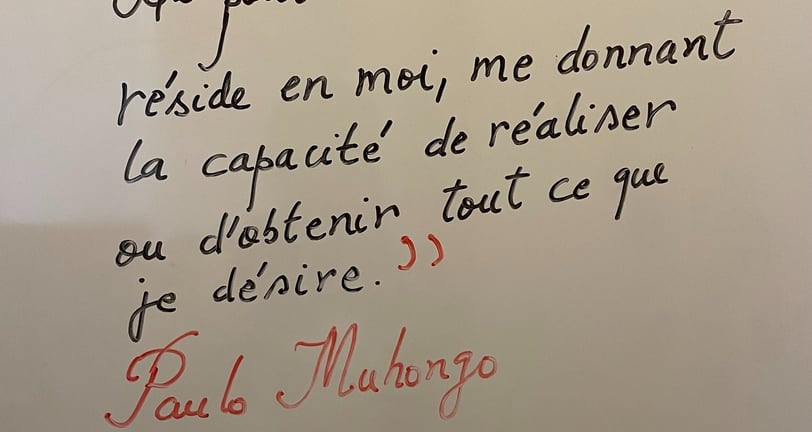 réside en moi, me donnant
la capacité de réaliser
ou d'obtenir tout ce que
je désire.”
Paulo Muhongo